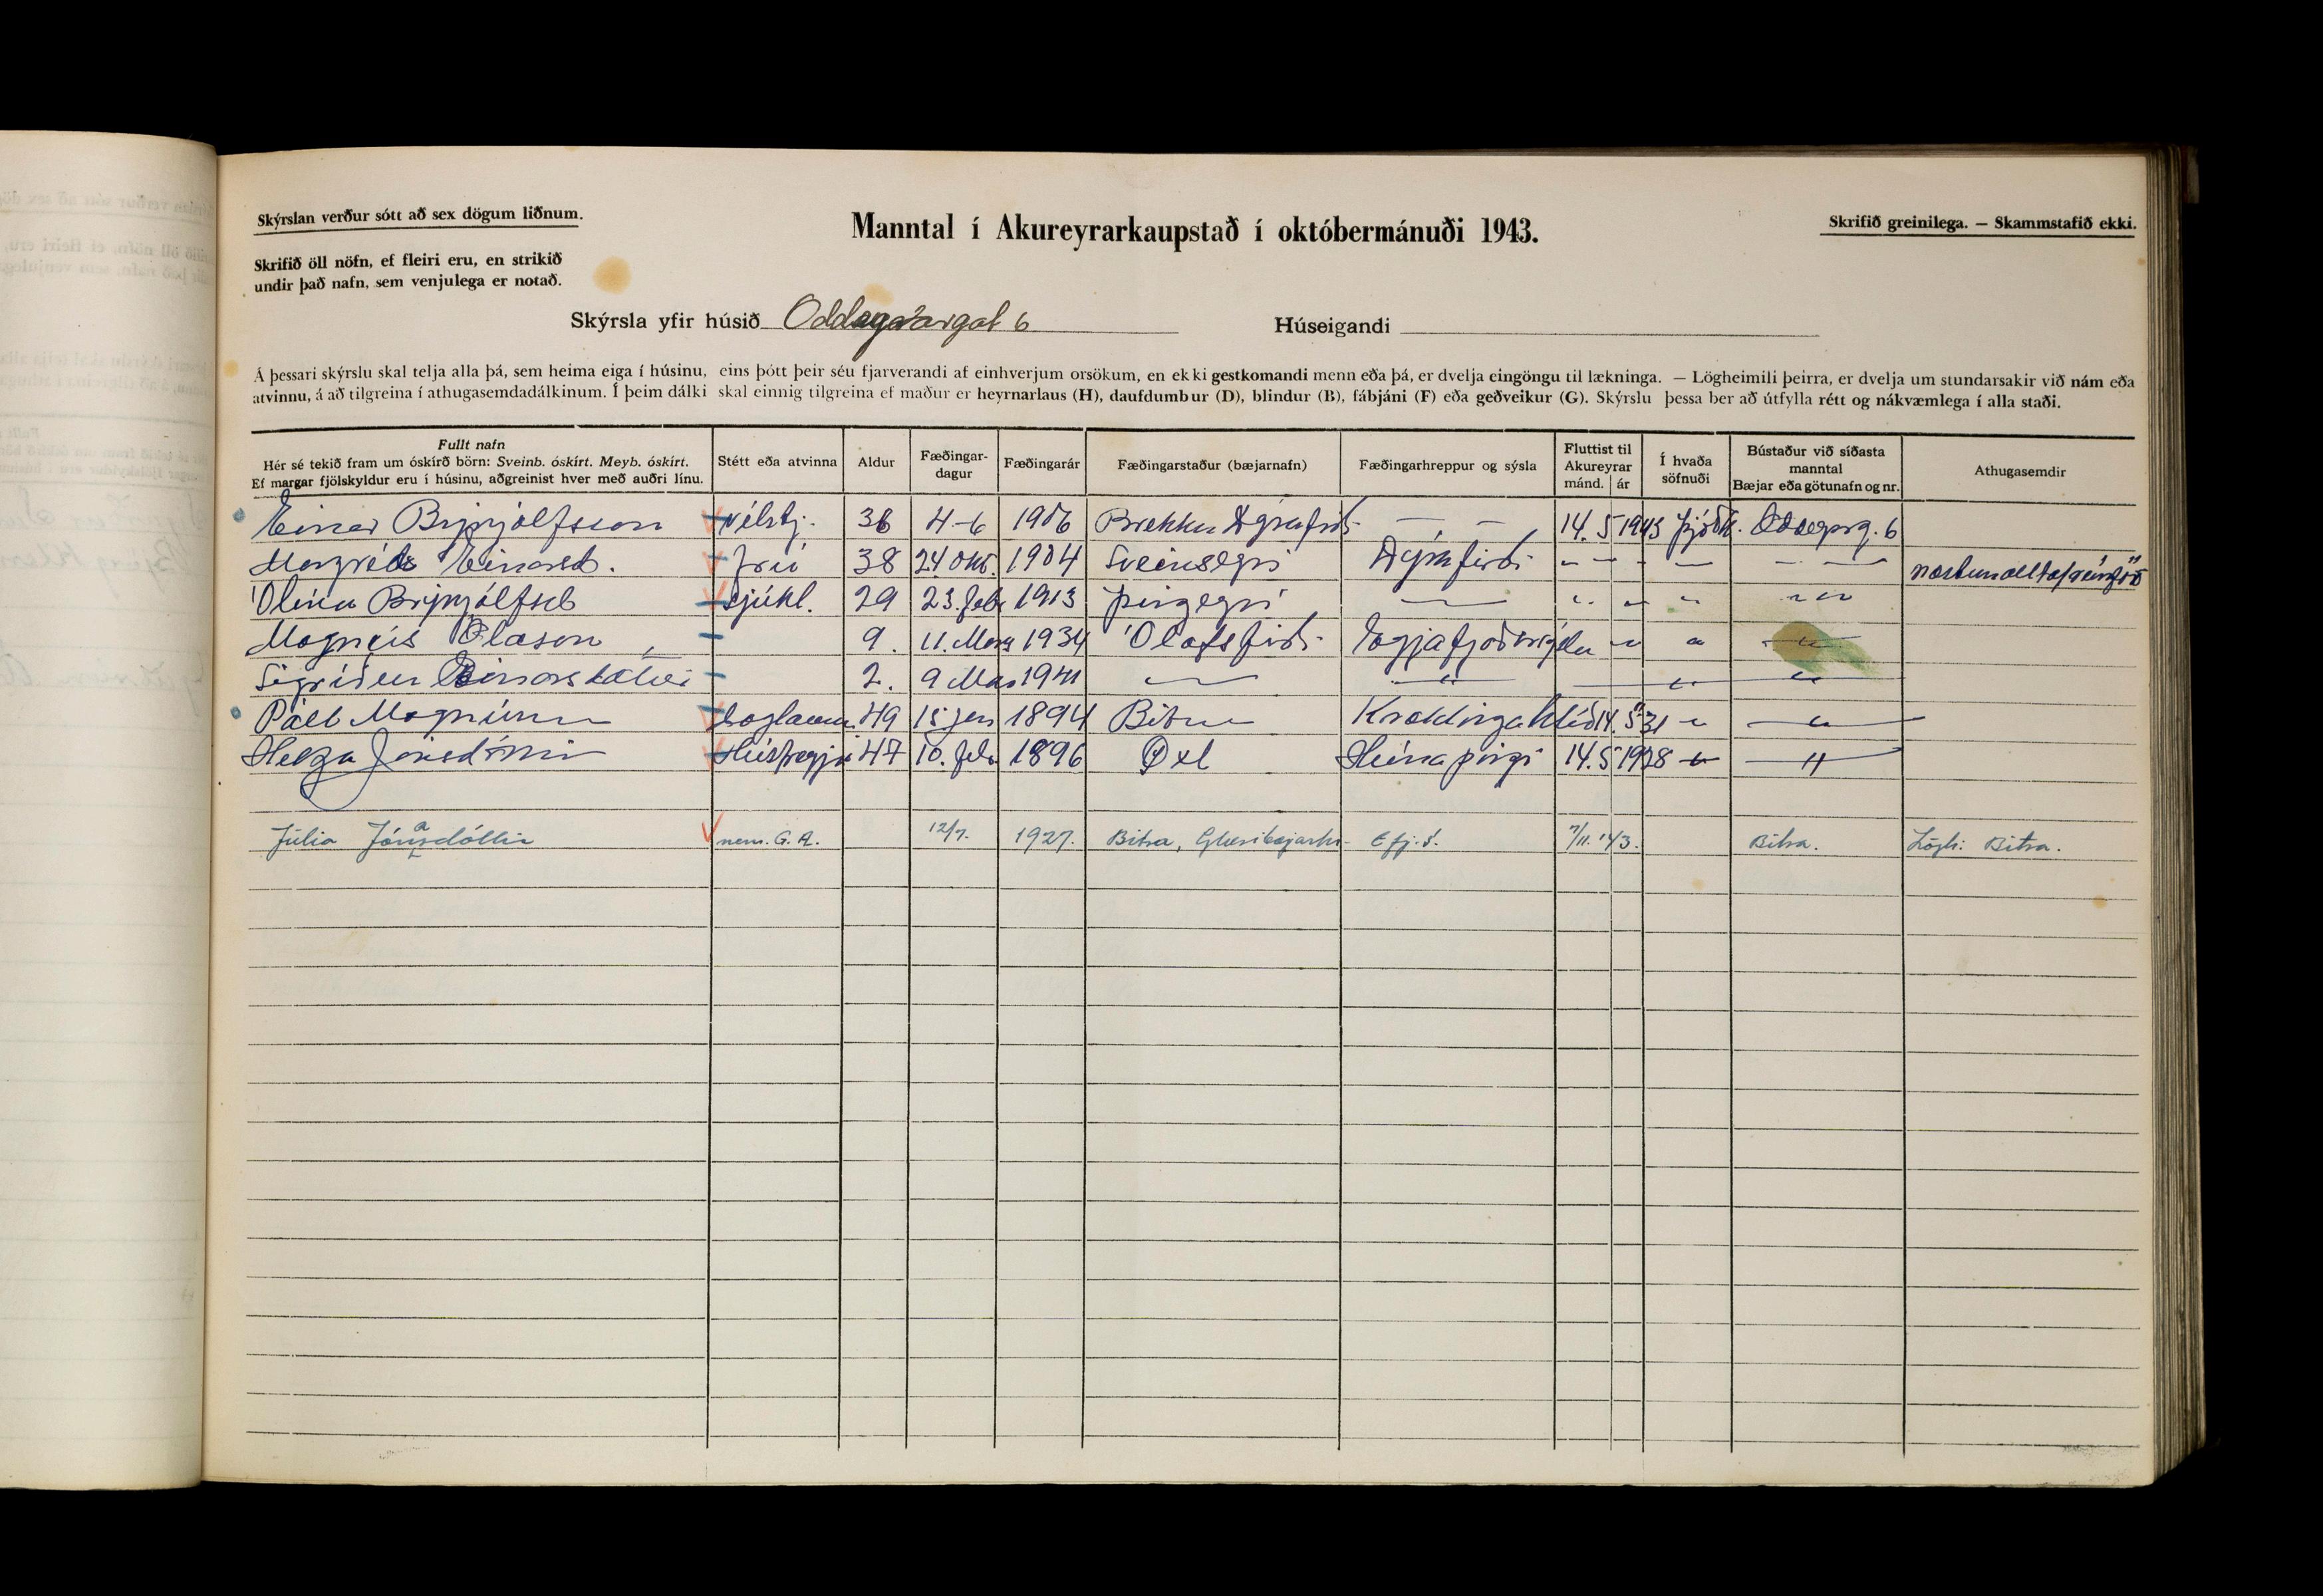 Skýrslan verður sótt að sex dögum liðnum.
Manntal í Akureyrarkaupstað í októbermánuði 1943.
Skrifið greinilega. — Skammstafið ekki.
Skrifið öll nöfn, ef fleiri eru, en strikið
undir það nafn, sem venjulega er notað.
Skýrsla yfir húsið Oddagata 6
Húseigandi
Á þessari skýrslu skal telja alla þá, sem heima eiga í húsinu, eins þótt þeir séu fjarverandi af einhverjum orsökum, en ekki gestkomandi menn eða þá, er dvelja eingöngu til lækninga. — Lögheimili þeirra, er dvelja um stundarsakir við nám eða
atvinnu, á að tilgreina í athugasemdadálkinum. Í þeim dálki skal einnig tilgreina ef maður er heyrnarlaus (H), daufdumbur (D), blindur (B), fábjáni (F) eða geðveikur (G). Skýrslu þessa ber að útfylla rétt og nákvæmlega í alla staði.
Fullt nafn
Hér sé tekið fram um óskírð börn: Sveinb. óskírt. Meyb. óskírt.
Ef margar fjölskyldur eru í húsinu, aðgreinist hver með auðri línu.
Stétt eða atvinna
Aldur
Fæðingar-
dagur
Fæðingarár
Fæðingarstaður (bæjarnafn)
Fæðingarhreppur og sýsla
Fluttist til
Akureyrar
mánd. ár
Í hvaða
söfnuði
Bústaður við síðasta
manntal
Bæjar eða götunafn og nr.
Athugasemdir
Einar Brynjólfsson vélstj. 36 4-6 1906 Brekku Dýrafirði — — 14. 5 1943 þjóðk. Oddeyrarg. 6
Margrét Einarsd. frú 38 24 okt. 1904 Sveinseyri Dýrafirði
Ólína Brynjólfsd sjúkl. 29 23. feb. 1913 Þingeyri
Magnús Ólason 9. 11. Mars 1934 Ólafsfirði Eyjafjarðarsýslu
Sigríður Einarsdóttir 2. 9 Mars 1941
Páll Magnússon 49 15 jan 1894 Bitru Kræklingahlíð 14. 5 31
Helga Jónsdóttir Húsfreyja 47 10. feb. 1896 Öxl Húnaþingi 14. 5 1928
Júlía Jónasdóttir nem. G.A. 12/7. 1927. Bitra, Glæsibæjarhr. Efj.s. 7/11. '43. Bitra. Lögh: Bitra.